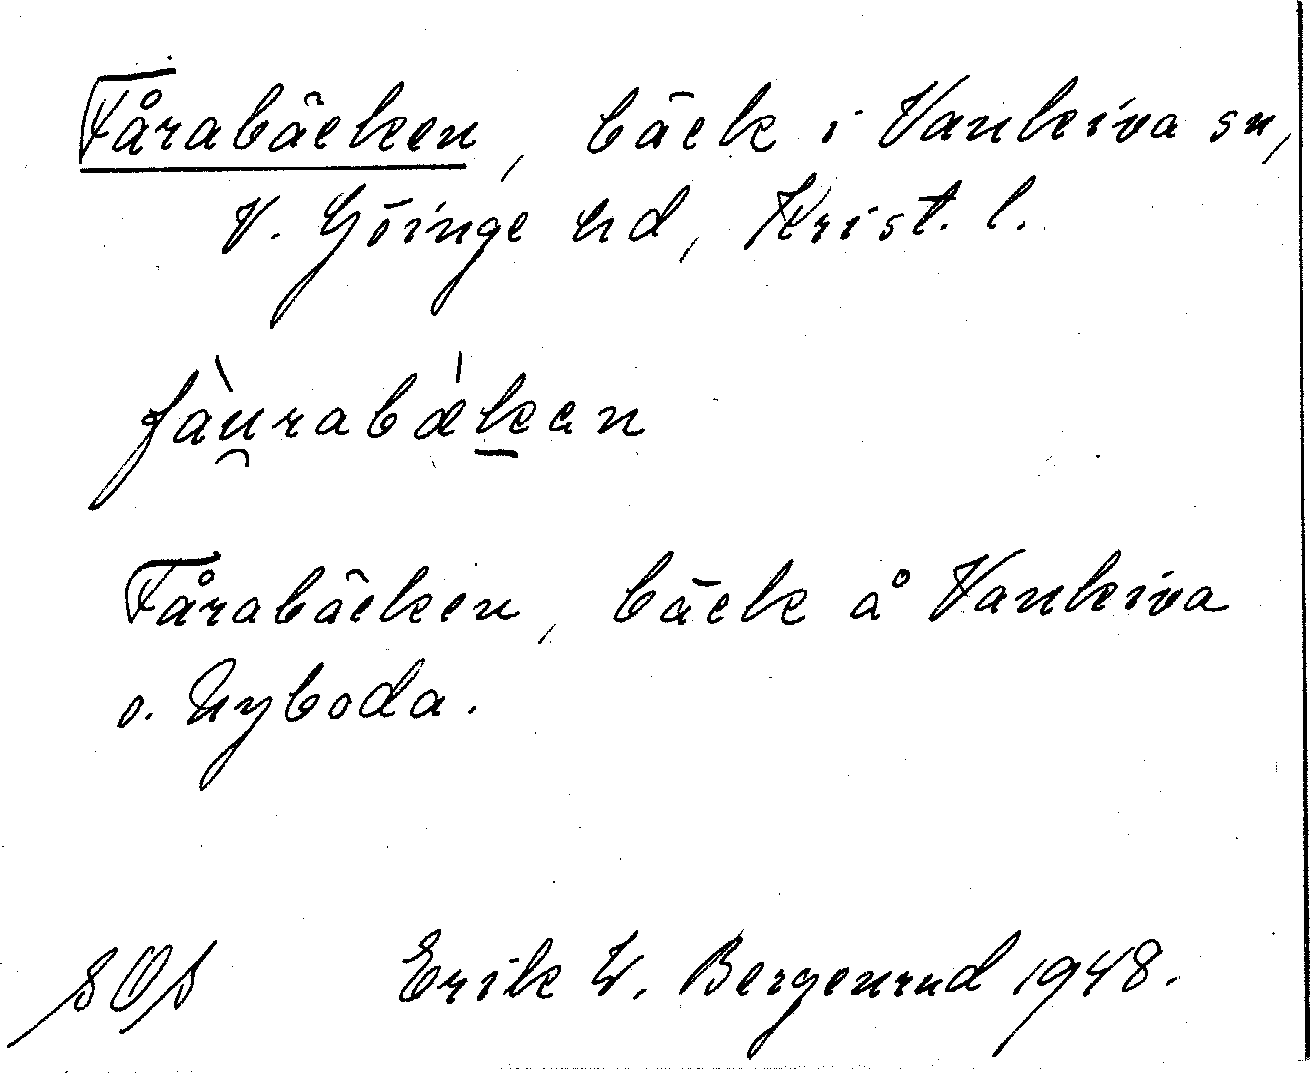 Fårabäcken, bäck i Vankiva sn,
V. Göinge hd, Krist. l.
fàu̯rabæ̍ḵan
Fårabäcken, bäck å Vankiva
o. Nyboda.
SOS Erik W. Bergenrud 1948.